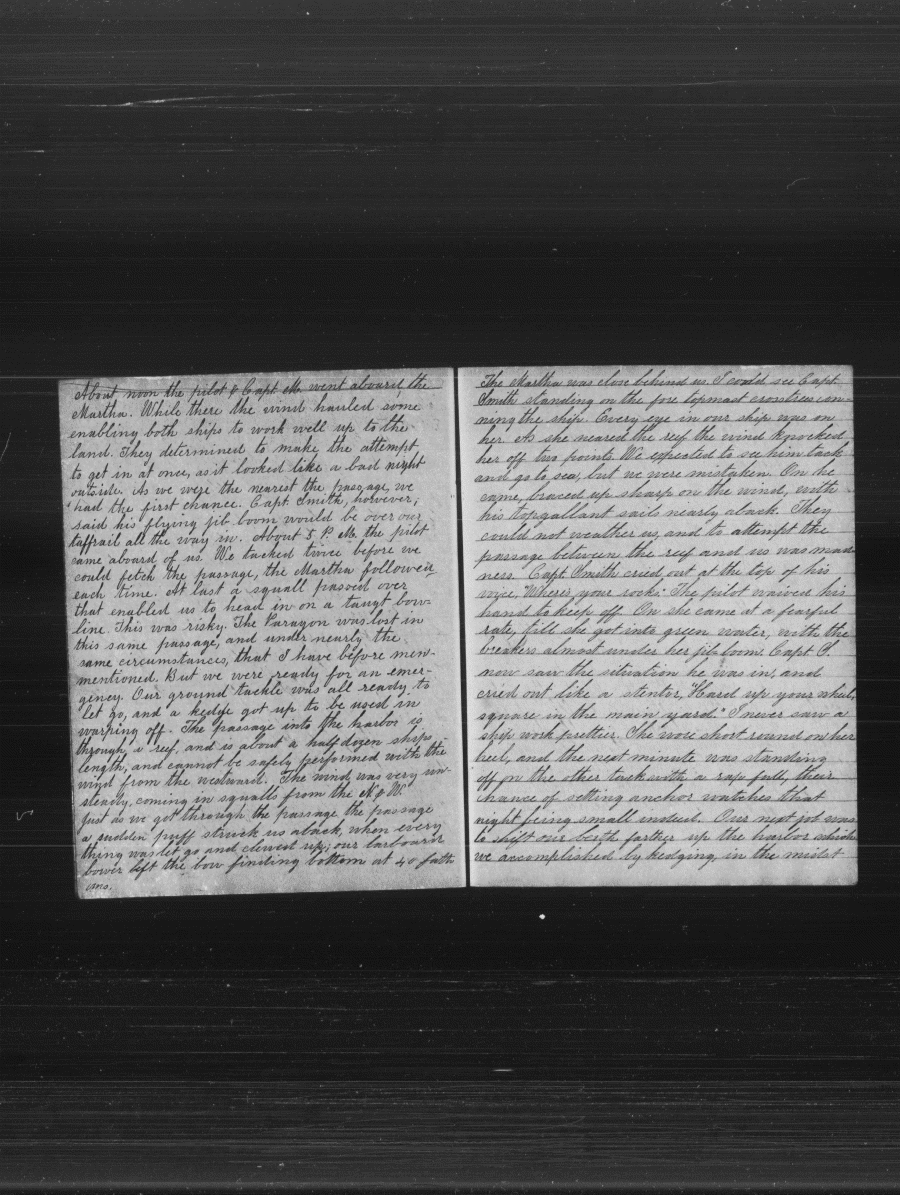 About noon the pilot & Capt M. went aboard the
Martha. While there the wind hauled some
enabling both ships to work well up to the
land. They determined to make the attempt
to get in at once, as it looked like a bad night
outside. As we were the nearest the passage, we
had the first chance. Capt. Smith, however,
said his flying jib boom would be over our
taffrail all the way in. About 5 P. M. the pilot
came aboard of us. We tacked twice before we
could fetch the passage, the Martha followed
each time. At last a squall passed over
that enabled us to head in on a taugt bow-
line. This was risky. The Paragon was lost in
this same passage, and under nearly the
same circumstances, that I have before men-
mentioned. But we were ready for an emer-
gency. Our ground tackle was all ready to
let go, and a kedge got up to be used in
warping off. The passage into the harbor is
through a reef, and is about a half dozen ships
length, and cannot be safely performed with the
wind from the westward. The wind was very un-
steady, coming in squalls from the N. & W.
Just as we got through the passage, the passage
a sudden puff struck us aback, when every
thing was let go and clewed up; our larboard
bower left the bow finding bottom at 40 fath
oms.
The Martha was close behind us. I could see Capt.
Smith standing on the fore topmast crosstrees con-
ning the ship. Every eye in our ship was on
her. As she neared the reef the wind knocked
her off two points. We expected to see him tack
and go to sea, but we were mistaken. On he
came, braced up sharp on the wind, with
his topgallant sails nearly aback. They
could not weather us, and to attempt the
passage between the reef and us was mad-
ness. Capt. Smith cried out at the top of his
voice, "Where's your rock." The pilot waived his
hand to keep off. On she came at a fearful
rate, till she got into green water, with the
breakers almost under her jib boom. Capt. S.
now saw the situation he was in, and
cried out like a stentor, "Hard up your wheel,
square in the main yard." I never saw a
ship work prettier. She wore short round on her
heel, and the next minute was standing
off on the other tack with a rap full, their
chance of setting anchor watches that
night being small indeed. Our next job was
to shift our berth farther up the harbor which
we accomplished by kedging, in the midst